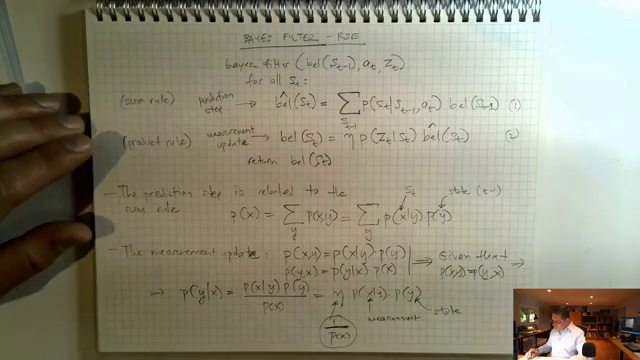 BAYES FILTER - RSE
bayes filter (bel(S_{t-1}), a_t, Z_t)
for all S_t:
(sum rule) prediction step → bel̂(S_t) = ∑_{S_{t-1}} p(S_t|S_{t-1}, a_t) bel(S_{t-1}) (1)
(product rule) measurement update → bel(S_t) = η p(Z_t|S_t) bel̂(S_t) (2)
return bel(S_t)
- The prediction step is related to the sum rule
S_t state (t-1)
p(x) = ∑_y p(x,y) = ∑_y p(x|y) p(y)
- The measurement update: p(x,y) = p(x|y) · p(y)
p(y,x) = p(y|x) p(x)
⟹ Given that p(x,y) = p(y,x) ⟹
⟹ p(y|x) = p(x|y) p(y) / p(x) = η p(x|y) · p(y)
1/p(x) measurement state